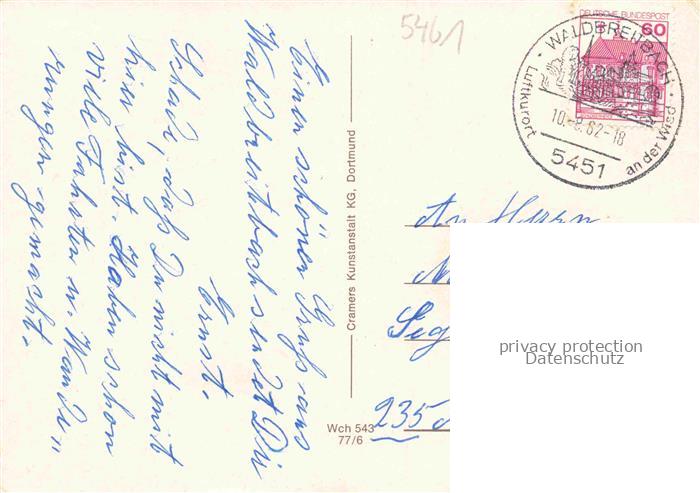 5461
DEUTSCHE BUNDESPOST
60
WALDBREITBACH
Luftkurort
an der Wied
10.-8.82-18
5451
Einen schönen Gruß aus
Waldbreitbach sendet Dir
Ernst.
Schade, daß Du nicht mit
hier bist. Haben schon
viele Fahrten u. Wande"
rungen gemacht.
Cramers Kunstanstalt KG, Dortmund
Wch 543
77/6
An Herrn
235
privacy protection
Datenschutz